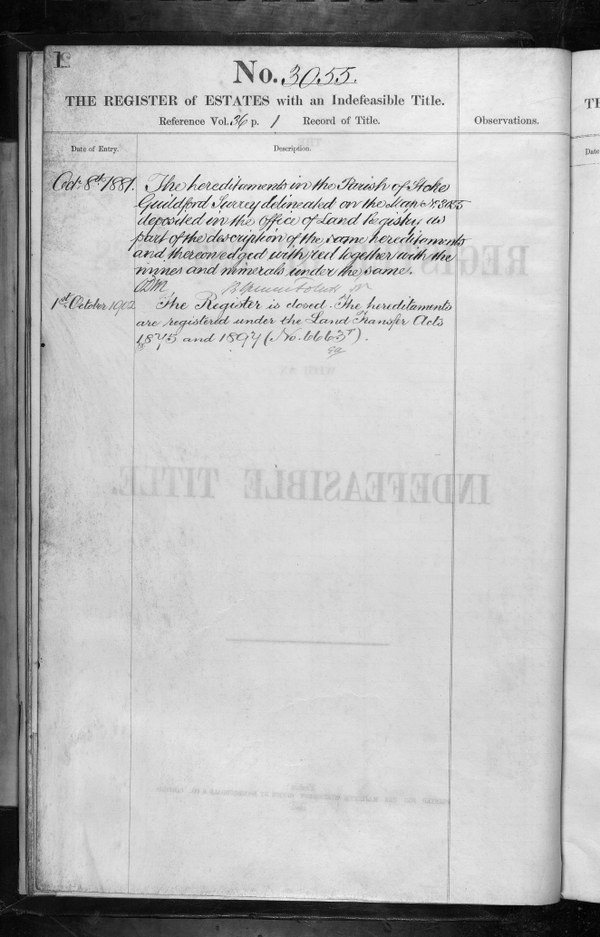 No. 3055.
THE REGISTER of ESTATES with an Indefeasible Title.
Reference Vol. 36 p. 1 Record of Title.
Observations.
Date of Entry.
Description.
Oct. 8th 1881. The hereditaments in the Parish of Stoke
Guildford Surrey delineated on the Map No 3055
deposited in the office of Land Registry as
part of the description of the same hereditaments
and thereon edged with red together with the
mines and minerals under the same.
1st October 1902 The Register is closed. The hereditaments
are registered under the Land Transfer Acts
1875 and 1897 (No. 6663).
INDEFEASIBLE TITLE.